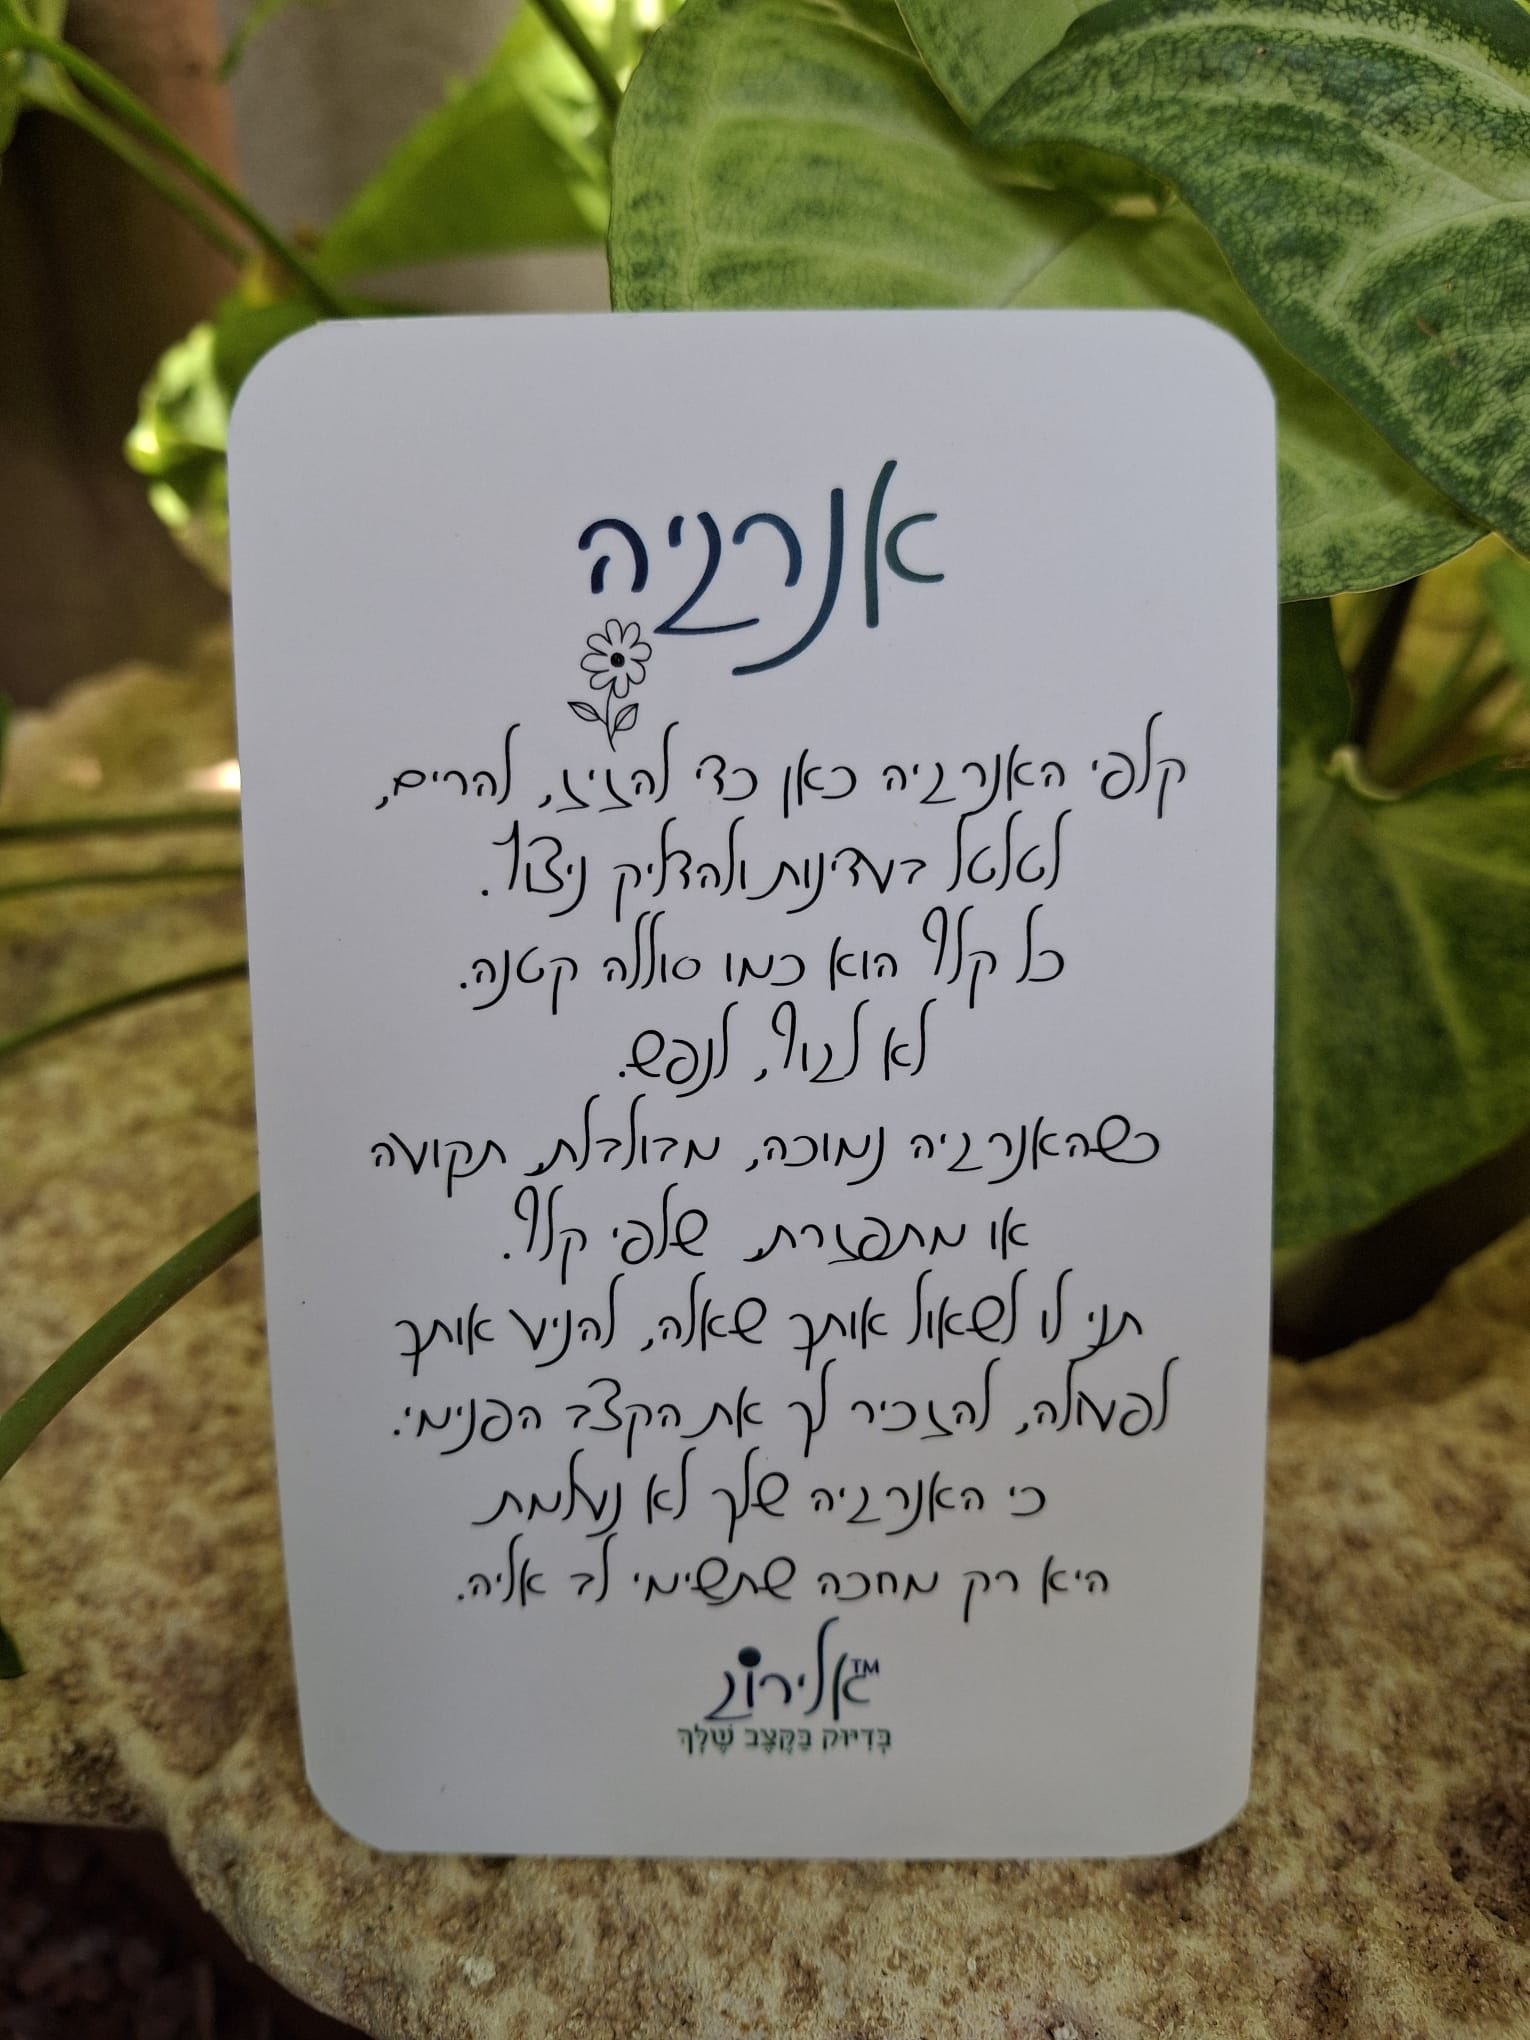 אנרגיה
קלפי האנרגיה כאן כדי להזיז, להרים,
לטלטל בעדינות ולהדליק ניצוץ.
כל קלף הוא כמו סוללה קטנה.
לא לגוף, לנפש.
כשהאנרגיה נמוכה, מבולבלת, תקועה
או מתפזרת, שלפי קלף.
תני לו לשאול אותך שאלה, להניע אותך
לפעולה, להזכיר לך את הקצב הפנימי.
כי האנרגיה שלך לא נעלמת
היא רק מחכה שתשימי לב אליה.
אלירוג™
בְּדִיּוּק בַּקֶּצֶב שֶׁלָּךְ